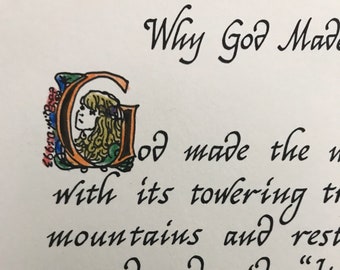 Why God Made
God made the
with its towering
mountains and